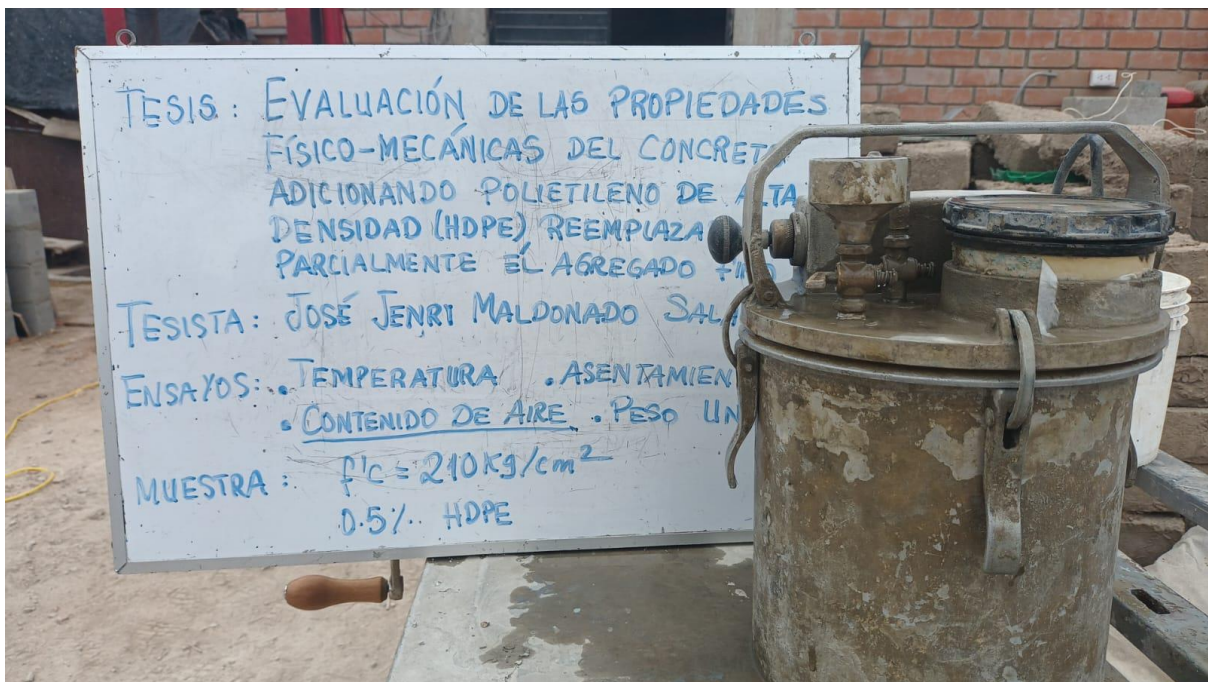 TESIS: EVALUACIÓN DE LAS PROPIEDADES
FÍSICO-MECÁNICAS DEL CONCRET
ADICIONANDO POLIETILENO DE ALTA
DENSIDAD (HDPE) REEMPLAZA
PARCIALMENTE EL AGREGADO FINO
TESISTA: JOSÉ JENRI MALDONADO SAL
ENSAYOS: . TEMPERATURA . ASENTAMIEN
. CONTENIDO DE AIRE . PESO UN
MUESTRA: f'c = 210 Kg/cm²
0.5%. HDPE